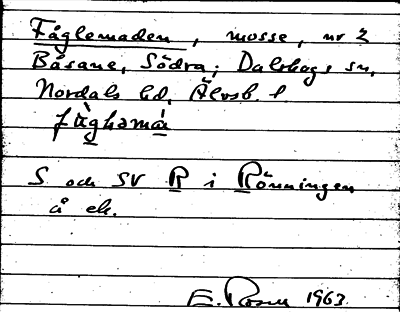 Fåglemaden, mosse, nr 2
Båsane, Södra; Dalskogs sn,
Nordals hd, Älvsb. l
fùghəmá
S och SV R i Rönningen
å ek.
E. Rosell 1963.